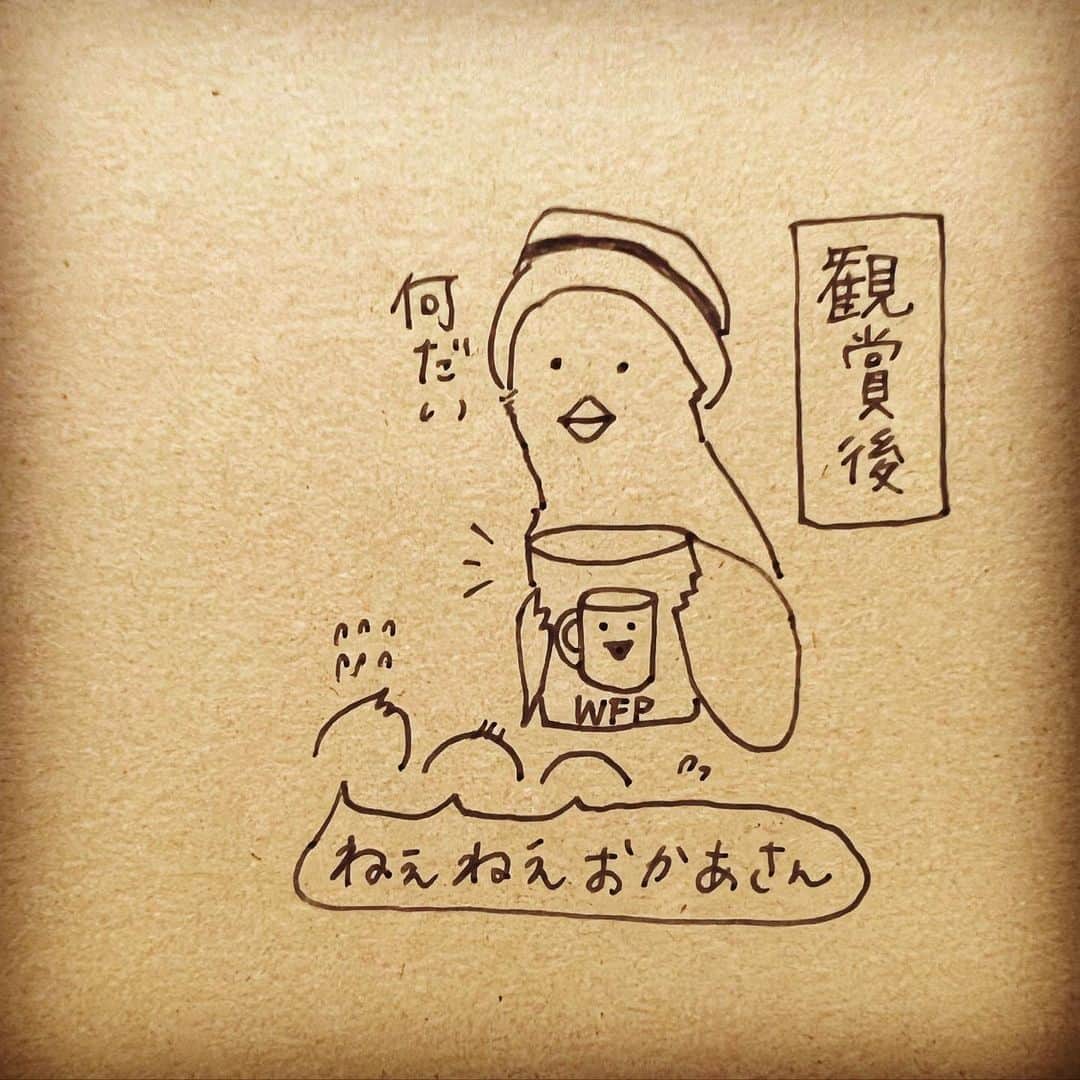 観賞後
何だい
WFP
ねぇねえおかあさん